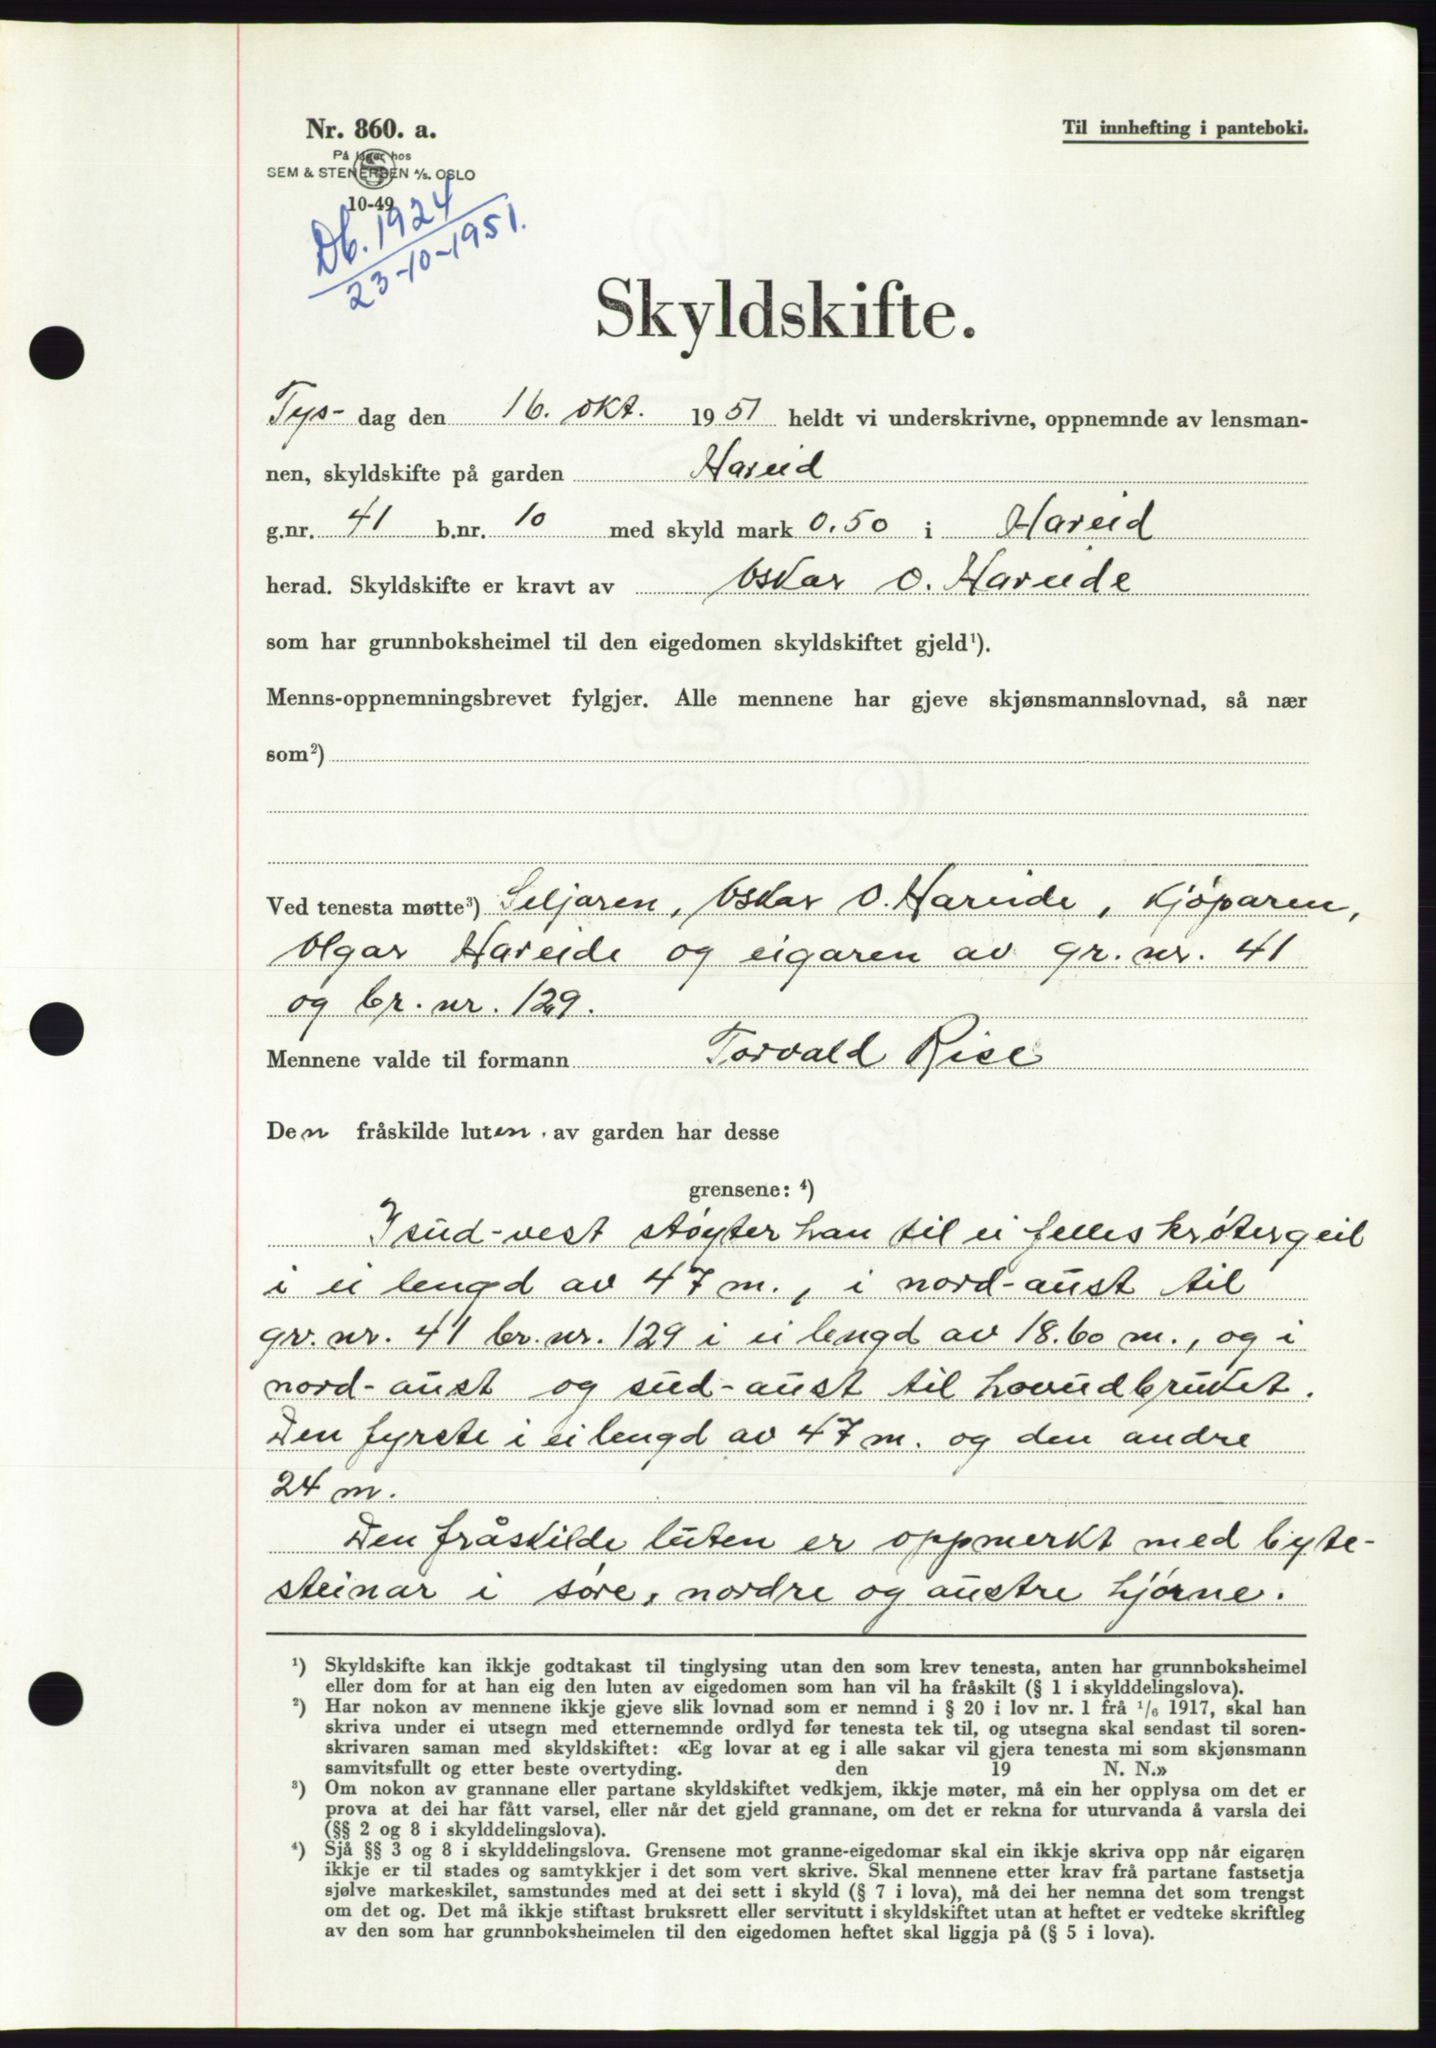 Nr. 860. a.
Til innhefting i panteboki.
På lager hos
SEM & STENERSEN A/S. OSLO
10-49
Db. 1924
23-10-1951.
Skyldskifte.
Tys- dag den 16. okt. 1951 heldt vi underskrivne, oppnemnde av lensman-
nen, skyldskifte på garden Hareid
g.nr. 41 b.nr. 10 med skyld mark 0.50 i Hareid
herad. Skyldskifte er kravt av Oskar O. Hareide
som har grunnboksheimel til den eigedomen skyldskiftet gjeld¹).
Menns-oppnemningsbrevet fylgjer. Alle mennene har gjeve skjønsmannslovnad, så nær
som²)
Ved tenesta møtte³) Seljaren, Oskar O. Hareide, kjøparen,
Olgar Hareide og eigaren av gr. nr. 41
og br. nr. 129.
Mennene valde til formann Torvald Rise
Den fråskilde luten av garden har desse
grensene: ⁴)
I sud-vest støyter han til ei felles krøtergeil
i ei lengd av 47 m., i nord-aust til
gr. nr. 41 br. nr. 129 i ei lengd av 18.60 m., og i
nord-aust og sud-aust til hovudbruket.
Den fyrste i ei lengd av 47 m. og den andre
24 m.
Den fråskilde luten er oppmerkt med byte-
steinar i søre, nordre og austre hjørne.
¹) Skyldskifte kan ikkje godtakast til tinglysing utan den som krev tenesta, anten har grunnboksheimel
eller dom for at han eig den luten av eigedomen som han vil ha fråskilt (§ 1 i skylddelingslova).
²) Har nokon av mennene ikkje gjeve slik lovnad som er nemnd i § 20 i lov nr. 1 frå 1/6 1917, skal han
skriva under ei utsegn med etternemnde ordlyd før tenesta tek til, og utsegna skal sendast til soren-
skrivaren saman med skyldskiftet: «Eg lovar at eg i alle sakar vil gjera tenesta mi som skjønsmann
samvitsfullt og etter beste overtyding. den 19 N. N.»
³) Om nokon av grannane eller partane skyldskiftet vedkjem, ikkje møter, må ein her opplysa om det er
prova at dei har fått varsel, eller når det gjeld grannane, om det er rekna for uturvanda å varsla dei
(§§ 2 og 8 i skylddelingslova).
⁴) Sjå §§ 3 og 8 i skylddelingslova. Grensene mot granne-eigedomar skal ein ikkje skriva opp når eigaren
ikkje er til stades og samtykkjer i det som vert skrive. Skal mennene etter krav frå partane fastsetja
sjølve markeskilet, samstundes med at dei sett i skyld (§ 7 i lova), må dei her nemna det som trengst
om det og. Det må ikkje stiftast bruksrett eller servitutt i skyldskiftet utan at heftet er vedteke skriftleg
av den som har grunnboksheimelen til den eigedomen heftet skal liggja på (§ 5 i lova).